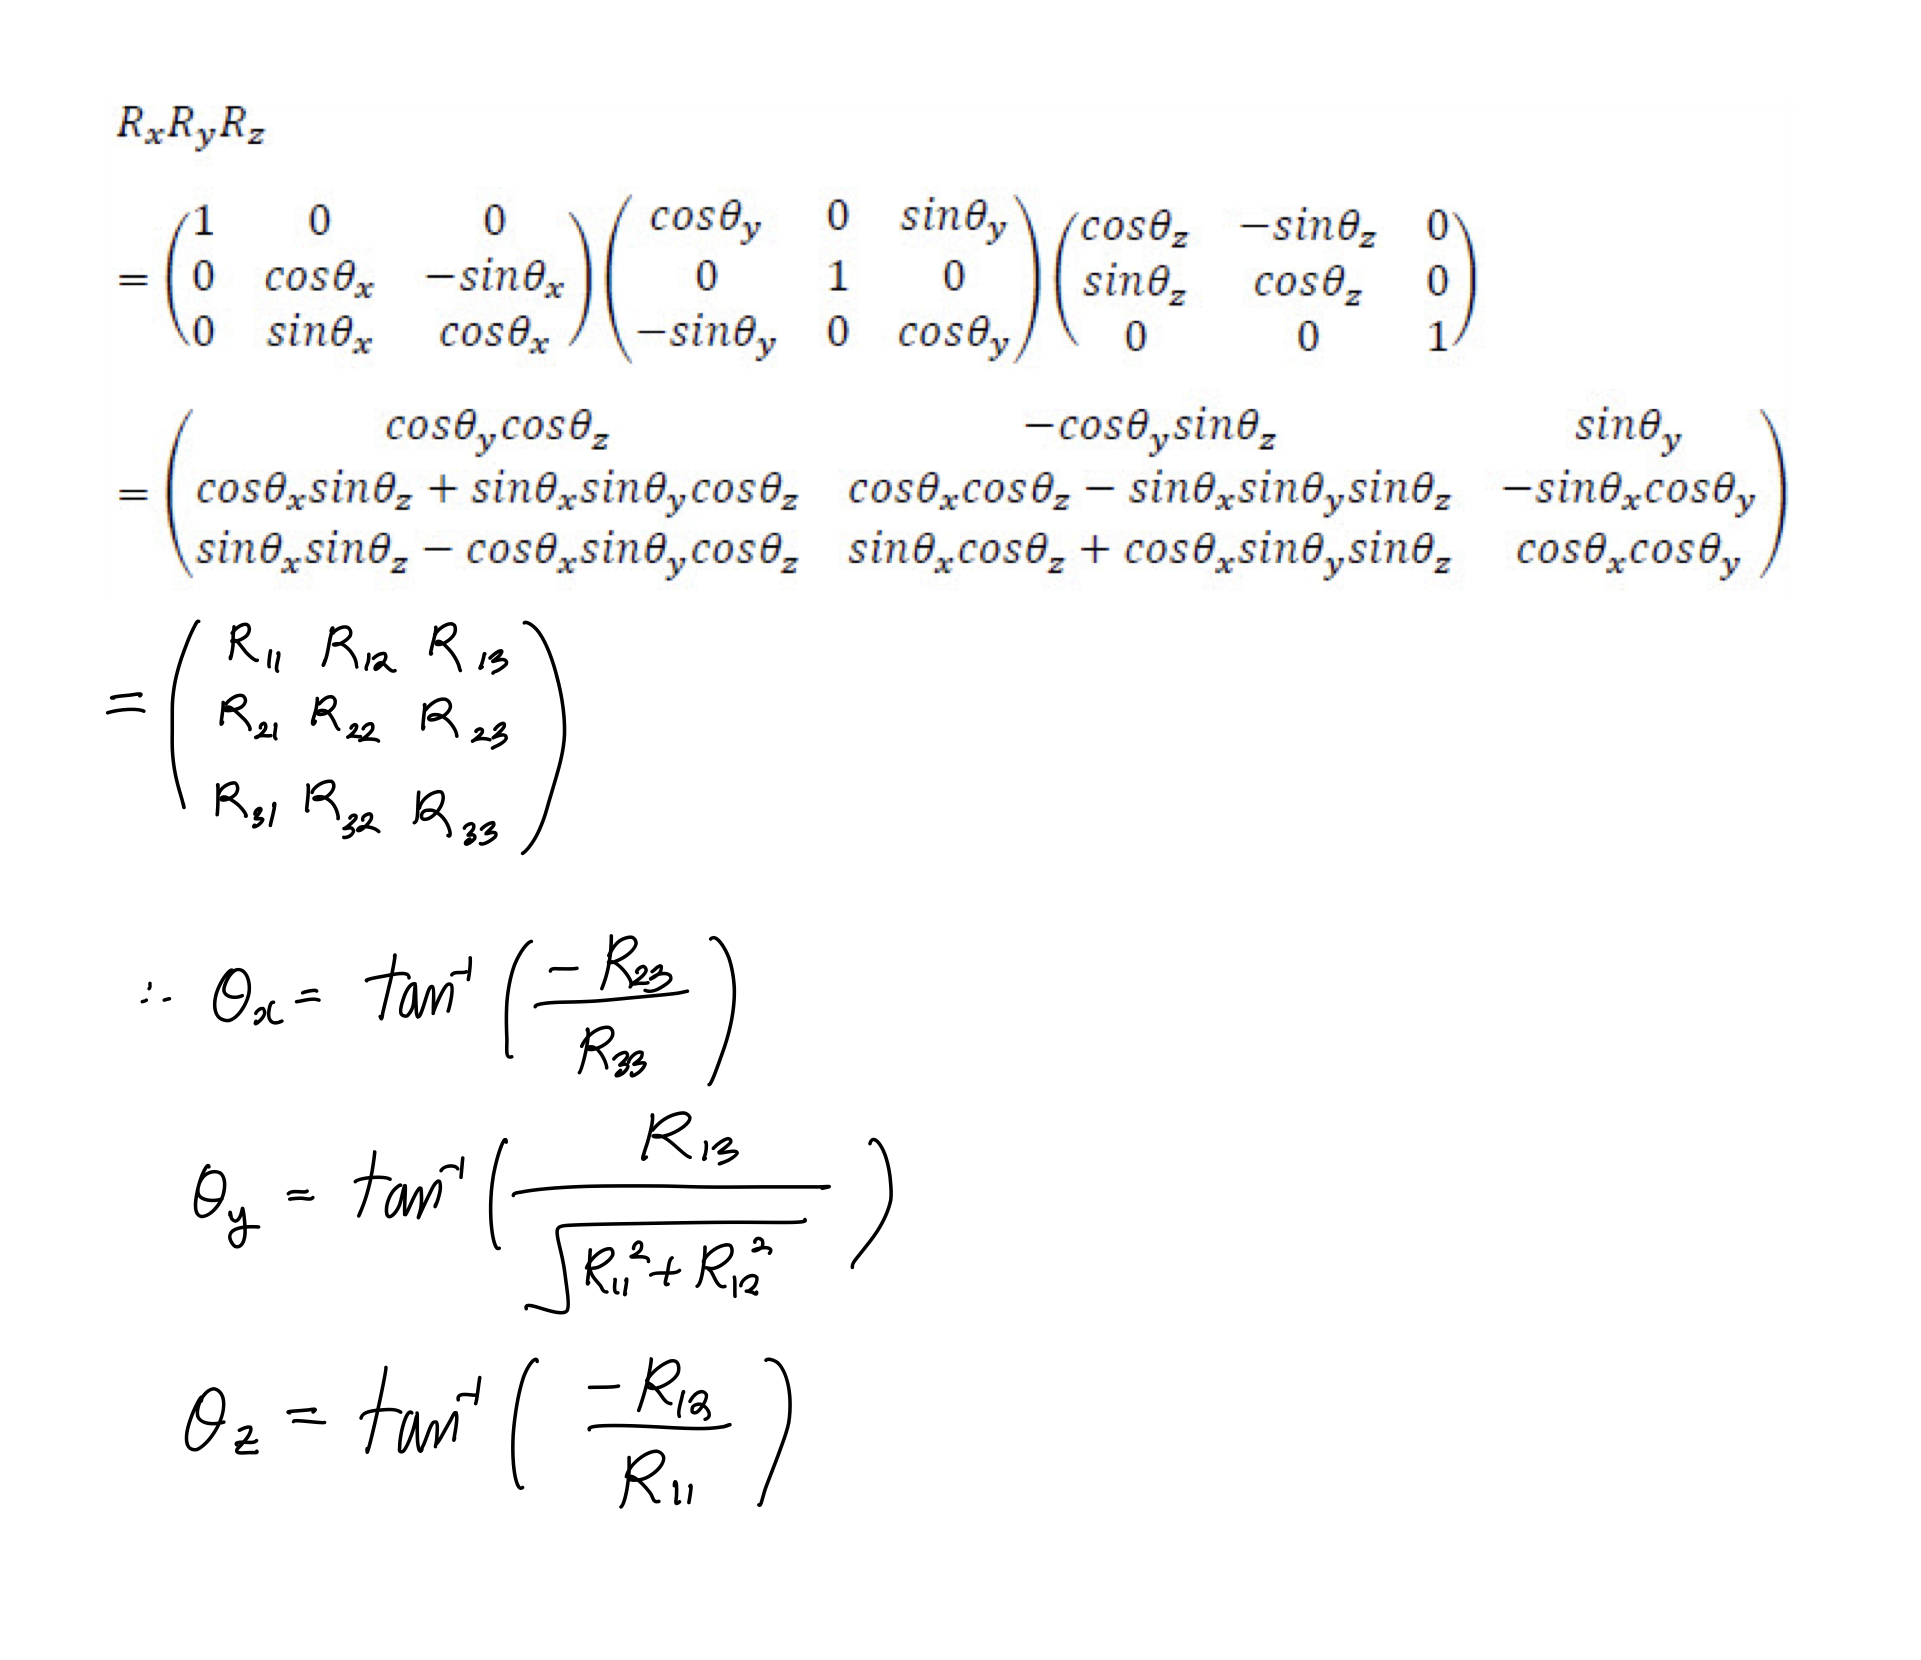 RₓRᵧR_z
= (1 0 0
0 cosθₓ −sinθₓ
0 sinθₓ cosθₓ) (cosθᵧ 0 sinθᵧ
0 1 0
−sinθᵧ 0 cosθᵧ) (cosθ_z −sinθ_z 0
sinθ_z cosθ_z 0
0 0 1)
= (cosθᵧcosθ_z −cosθᵧsinθ_z sinθᵧ
cosθₓsinθ_z + sinθₓsinθᵧcosθ_z cosθₓcosθ_z − sinθₓsinθᵧsinθ_z −sinθₓcosθᵧ
sinθₓsinθ_z − cosθₓsinθᵧcosθ_z sinθₓcosθ_z + cosθₓsinθᵧsinθ_z cosθₓcosθᵧ)
= (R₁₁ R₁₂ R₁₃
R₂₁ R₂₂ R₂₃
R₃₁ R₃₂ R₃₃)
∴ θₓ = tan⁻¹(−R₂₃ / R₃₃)
θᵧ = tan⁻¹(R₁₃ / √(R₁₁² + R₁₂²))
θ_z = tan⁻¹(−R₁₂ / R₁₁)